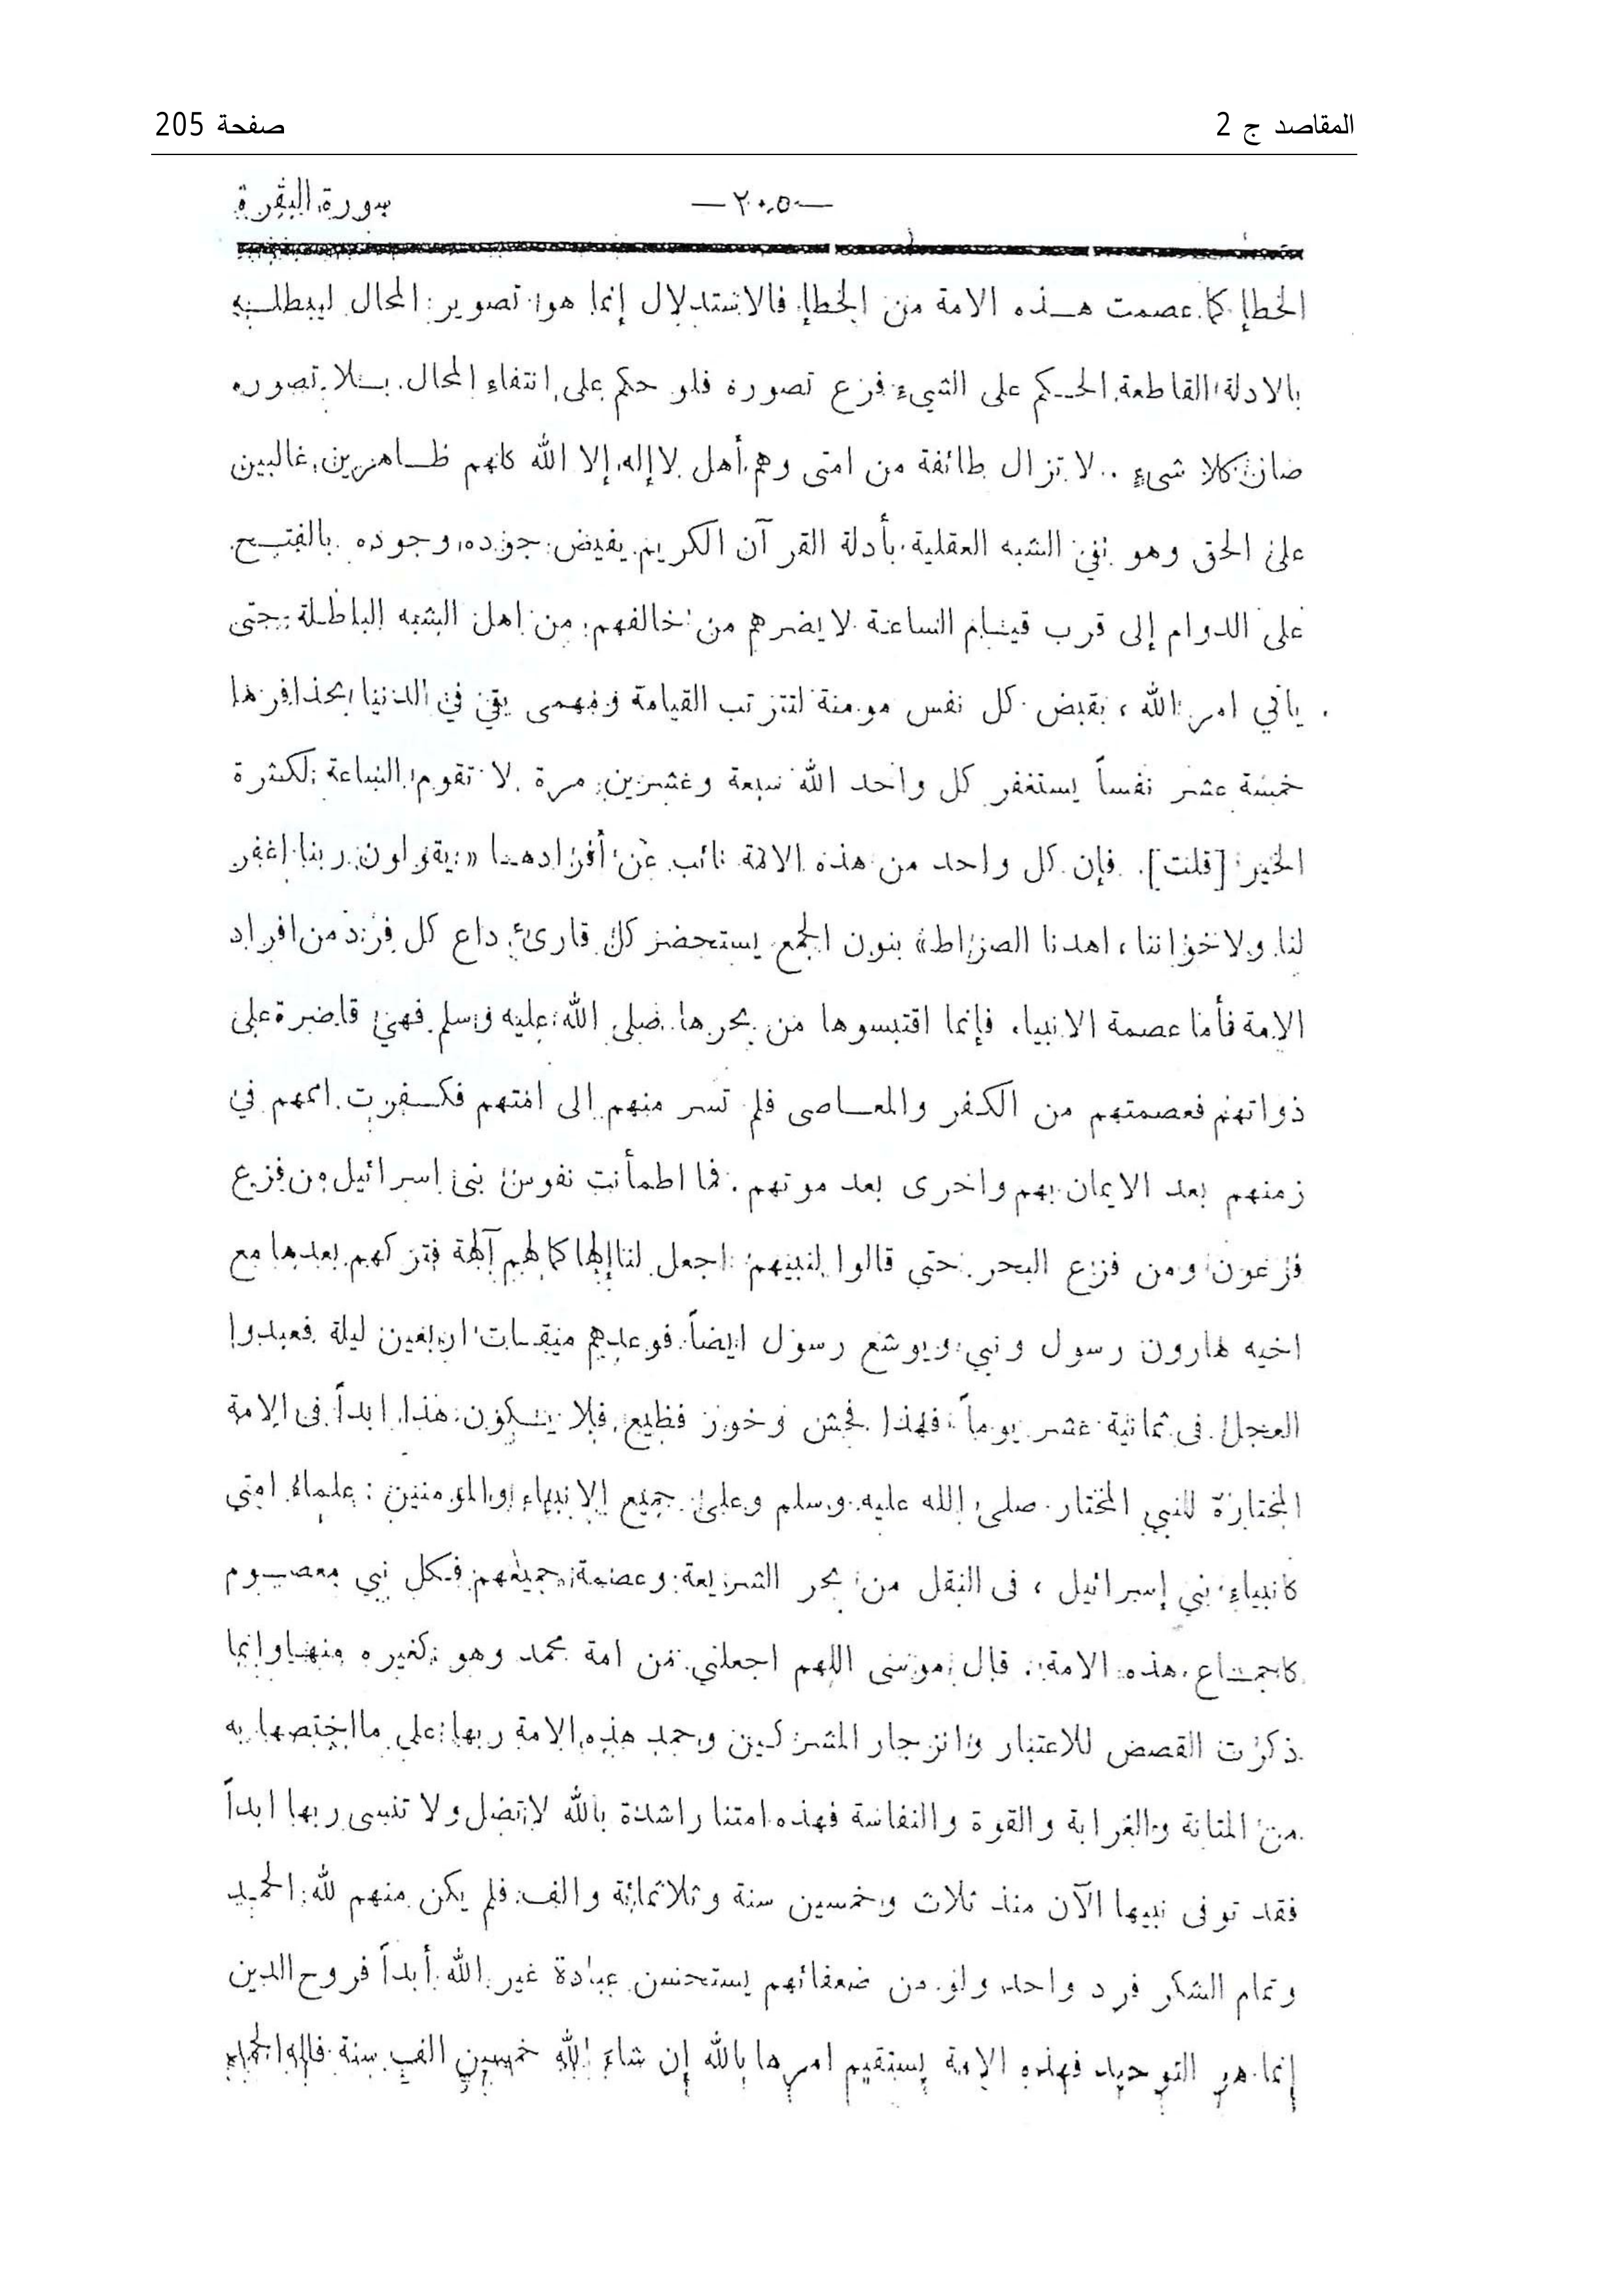 المقاصد ج 2 صفحة 205
سورة البقرة —٢٠٥—
الخطإ كما عصمت هذه الامة من الخطإ فالاستدلال إنما هو تصوير المحال ليبطلـــه
بالادلة القاطعة الحكم على الشيء فرع تصوره فلو حكم على انتفاء المحال بلا تصوره
كلا شىء .. لا تزال طائفة من امتى وهم أهل لا إله إلا الله كلهم ظاهرين غالبين
على الحق وهو نفي الشبه العقلية بأدلة القرآن الكريم يفيض جوده وجوده بالفتح
على الدوام إلى قرب قيام الساعة لا يضرهم من خالفهم من اهل الشبه الباطلة حتى
ياتي امر الله ، بقبض كل نفس مومنة لتترتب القيامة فمهمى بقي في الدنيا بحذافرها
خمسة عشر نفساً يستغفر كل واحد الله سبعة وعشرين مرة لا تقوم الساعة لكثرة
الخير [قلت]. فإن كل واحد من هذه الامة نائب عن أفرادها « يقولون ربنا اغفر
لنا ولاخواننا ، اهدنا الصراط» بنون الجمع يستحضر كل قارئ داع كل فرد من افراد
الامة فأما عصمة الانبياء فإنما اقتبسوها من بحرها صلى الله عليه وسلم فهي قاصرة على
ذواتهم فعصمتهم من الكفر والمعاصى فلم تسر منهم الى امتهم فكفرت اممهم في
زمنهم بعد الايمان بهم واخرى بعد موتهم . فما اطمأنت نفوس بنى إسرائيل من فزع
فرعون ومن فزع البحر حتى قالوا لنبيهم اجعل لنا إلها كما لهم آلهة فتركهم بعدها مع
اخيه هارون رسول ونبي ويوشع رسول ايضاً فوعدهم ميقات اربعين ليلة فعبدوا
العجل فى ثمانية عشر يوماً فهذا فحش وخور فظيع فلا يكون هذا ابداً فى الامة
المختارة للنبي المختار صلى الله عليه وسلم وعلى جميع الانبياء والمومنين : علماء امتي
كانبياء بني إسرائيل ، فى النقل من بحر الشريعة وعصمة جميعهم فكل نبي معصوم
كاجماع هذه الامة . قال موسى اللهم اجعلني من امة محمد وهو كغيره منها وإنما
ذكرت القصص للاعتبار وانزجار المشركين وحمد هذه الامة ربها على ما اختصها به
من المتانة والغرابة والقوة والنفاسة فهذه امتنا راشدة بالله لا تضل ولا تنسى ربها ابداً
فقد توفى نبيها الآن منذ ثلاث وخمسين سنة وثلاثمائة والف فلم يكن منهم لله الحمد
وتمام الشكر فرد واحد ولو من ضعفائهم يستحسن عبادة غير الله أبداً فروح الدين
إنما هو التوحيد فهذه الامة يستقيم امرها بالله إن شاء الله خمسين الف سنة فالله الحمد